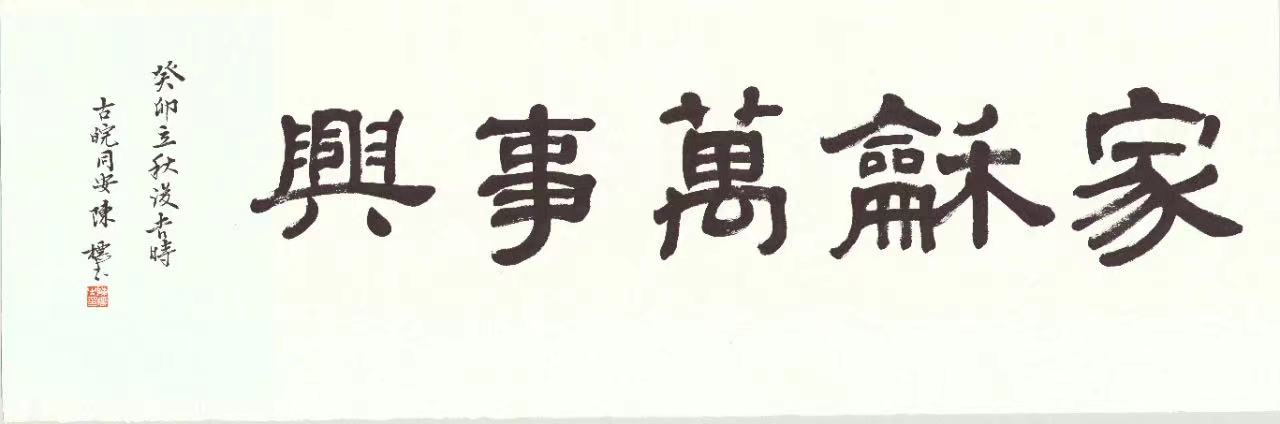 家龢萬事興
癸卯立秋後吉時
古皖同安陳